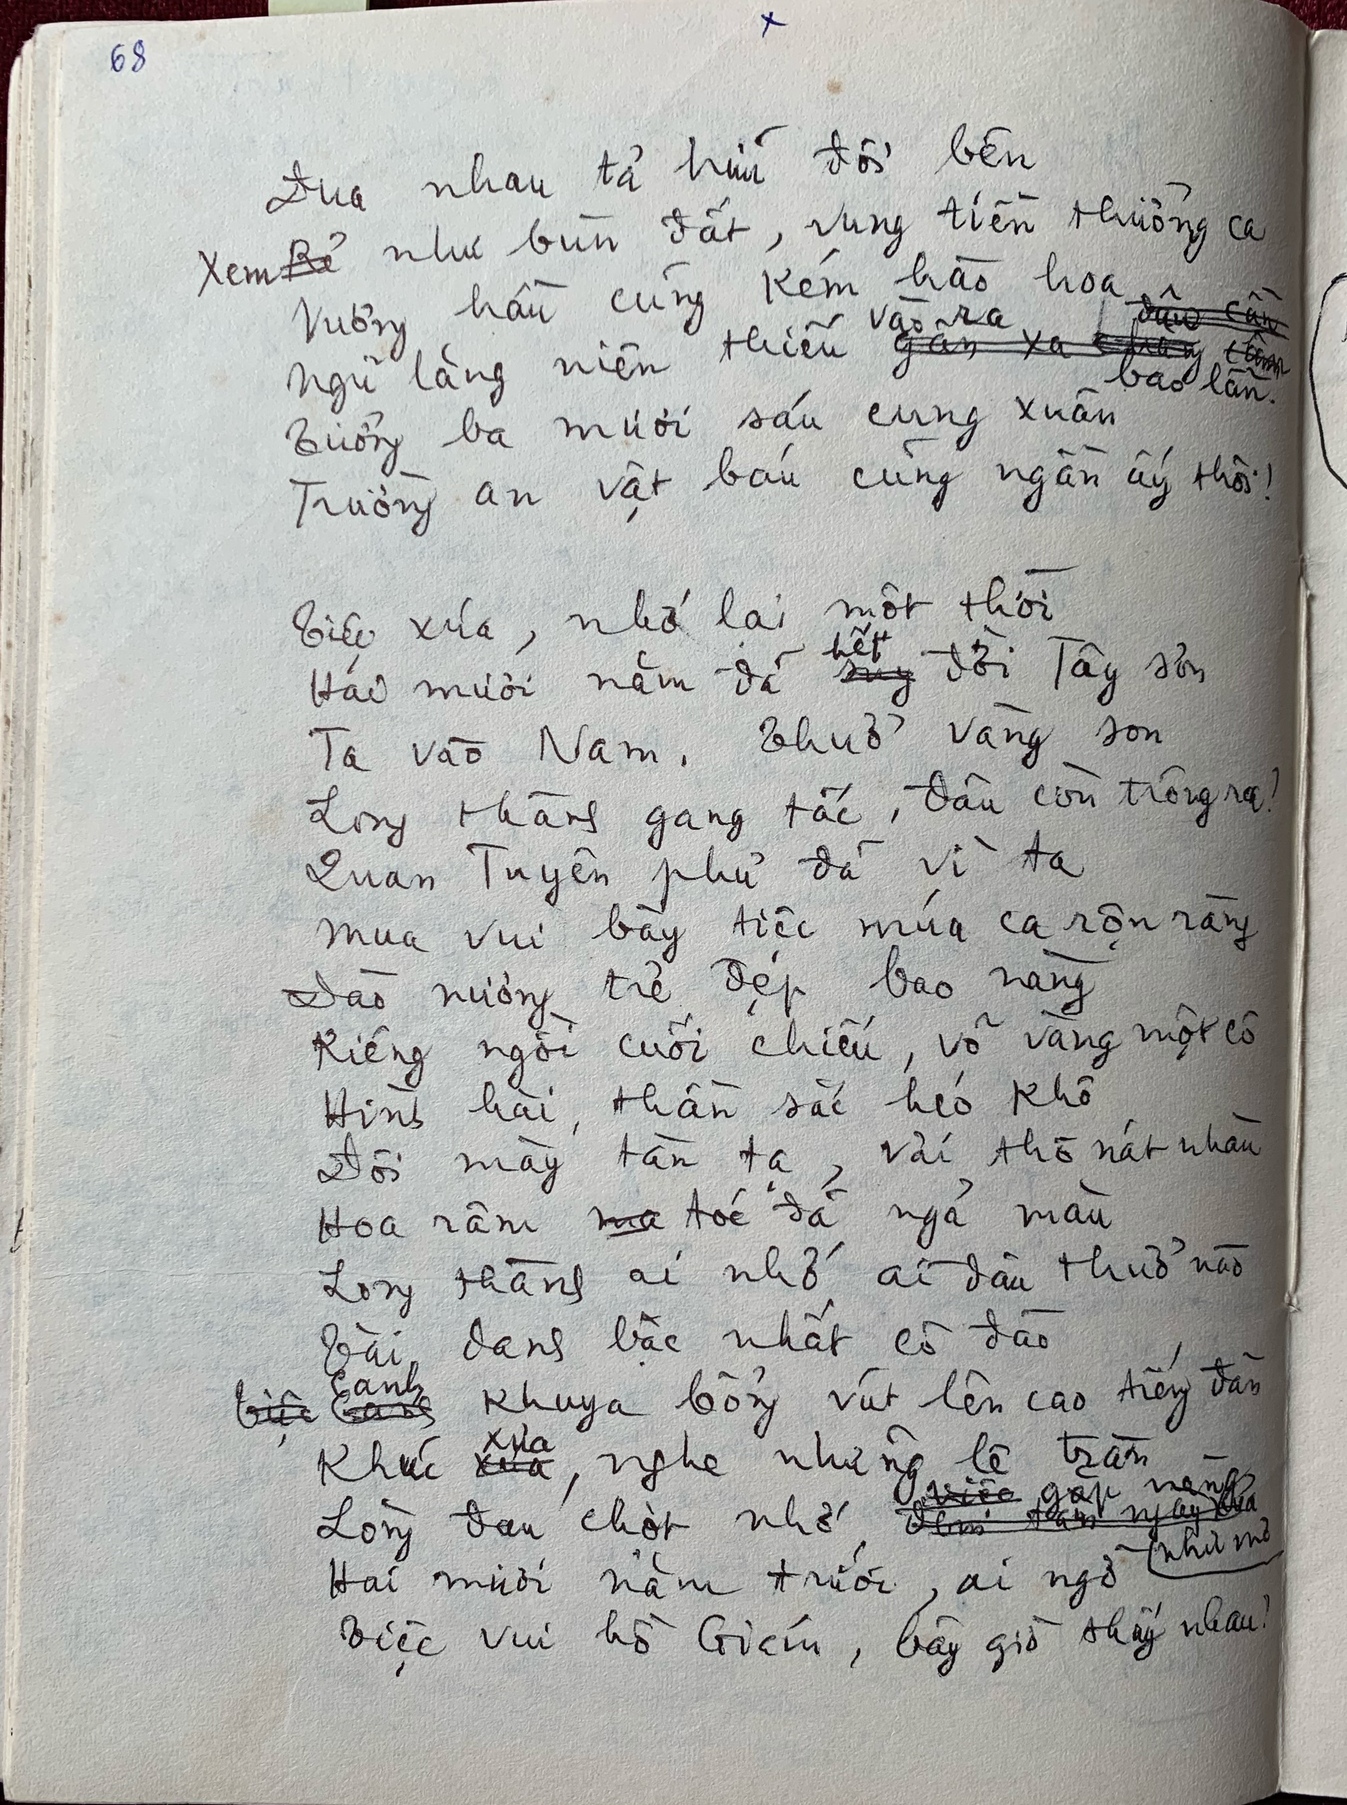 68
x
Đua nhau tả hữu đôi bên
Xem Rẻ như bùn đất, vung tiền thưởng ca
Vương hầu cũng kém hào hoa
vào ra đâu cần
Ngũ lăng niên thiếu gần xa
bao lần.
Tưởng ba mươi sáu cung xuân
Trường an vật báu cũng ngần ấy thôi!
Tiệc xưa, nhớ lại một thời
hết
Hai mươi năm đã suy đời Tây sơn
Ta vào Nam. Thuở vàng son
Long thành gang tấc, đâu còn trông ra?
Quan Tuyên phủ đã vì ta
Mua vui bày tiệc múa ca rộn ràng
Đào nương trẻ đẹp bao nàng
Riêng ngồi cuối chiếu, võ vàng một cô
Hình hài, thần sắc héo khô
Đôi mày tàn tạ, vải thô nát nhàu
Hoa râm mà tóc đã ngả màu
Long thành ai nhớ, ai đâu thuở nào
Tài danh bậc nhất cô đào
Canh
tiệc Canh khuya bỗng vút lên cao tiếng đàn
xưa
Khúc xưa, nghe những lệ tràn
việc gặp nàng
Lòng đau chợt nhớ, đêm tàn ngày xưa
như mơ
Hai mươi năm trước, ai ngờ
Tiệc vui hồ Giám, bây giờ thấy nhau!